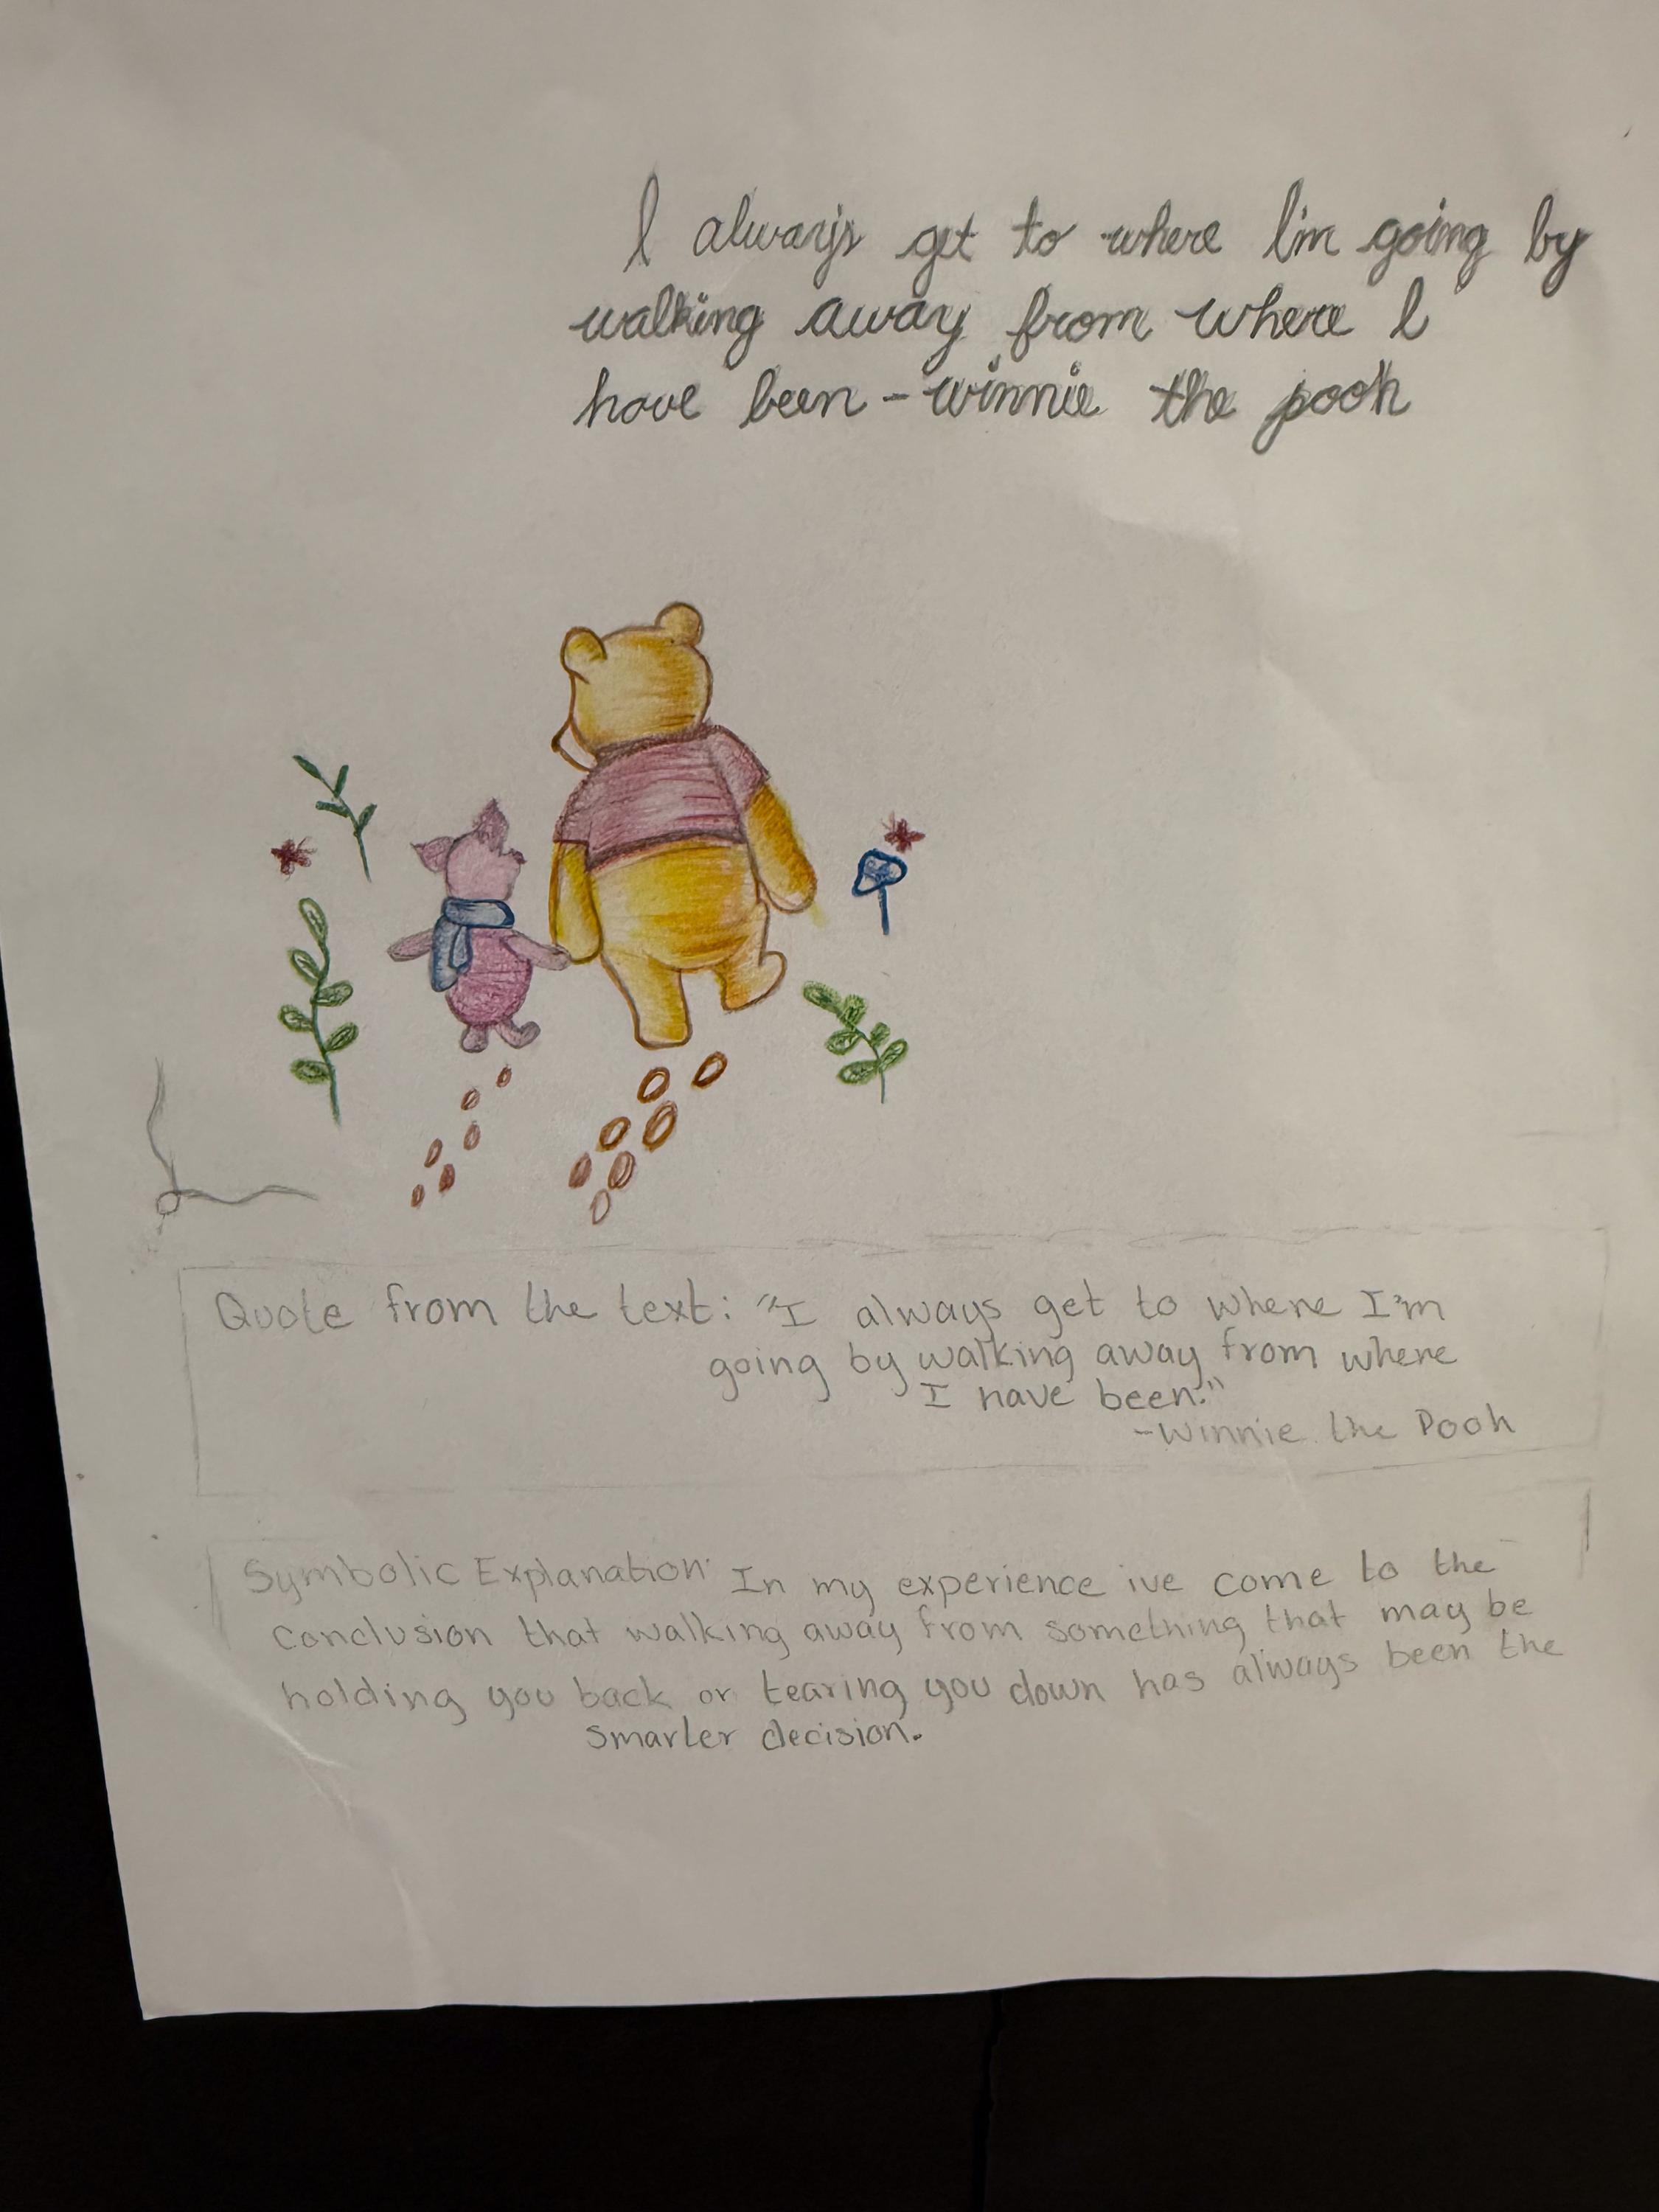 I always get to where I'm going by
walking away from where I
have been - winnie the pooh
Quote from the text: "I always get to where I'm
going by walking away from where
I have been."
-Winnie the Pooh
Symbolic Explanation: In my experience ive come to the
conclusion that walking away from something that may be
holding you back or tearing you down has always been the
smarter decision.